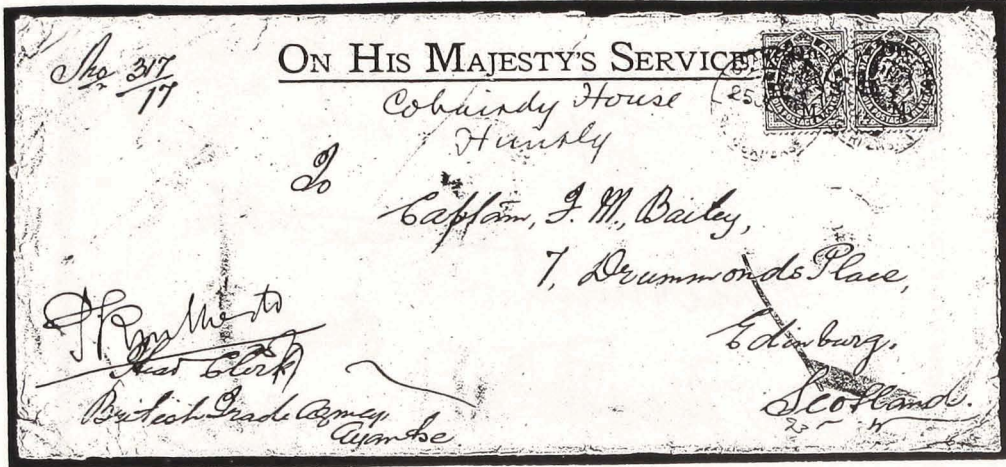 No 317/17
ON HIS MAJESTY'S SERVICE
Cobairdy House
Huntly
To
Captain, F. M. Bailey,
7, Drummonds Place,
Edinburg.
Scotland.
Head Clerk
British Trade Agency
Gyantse